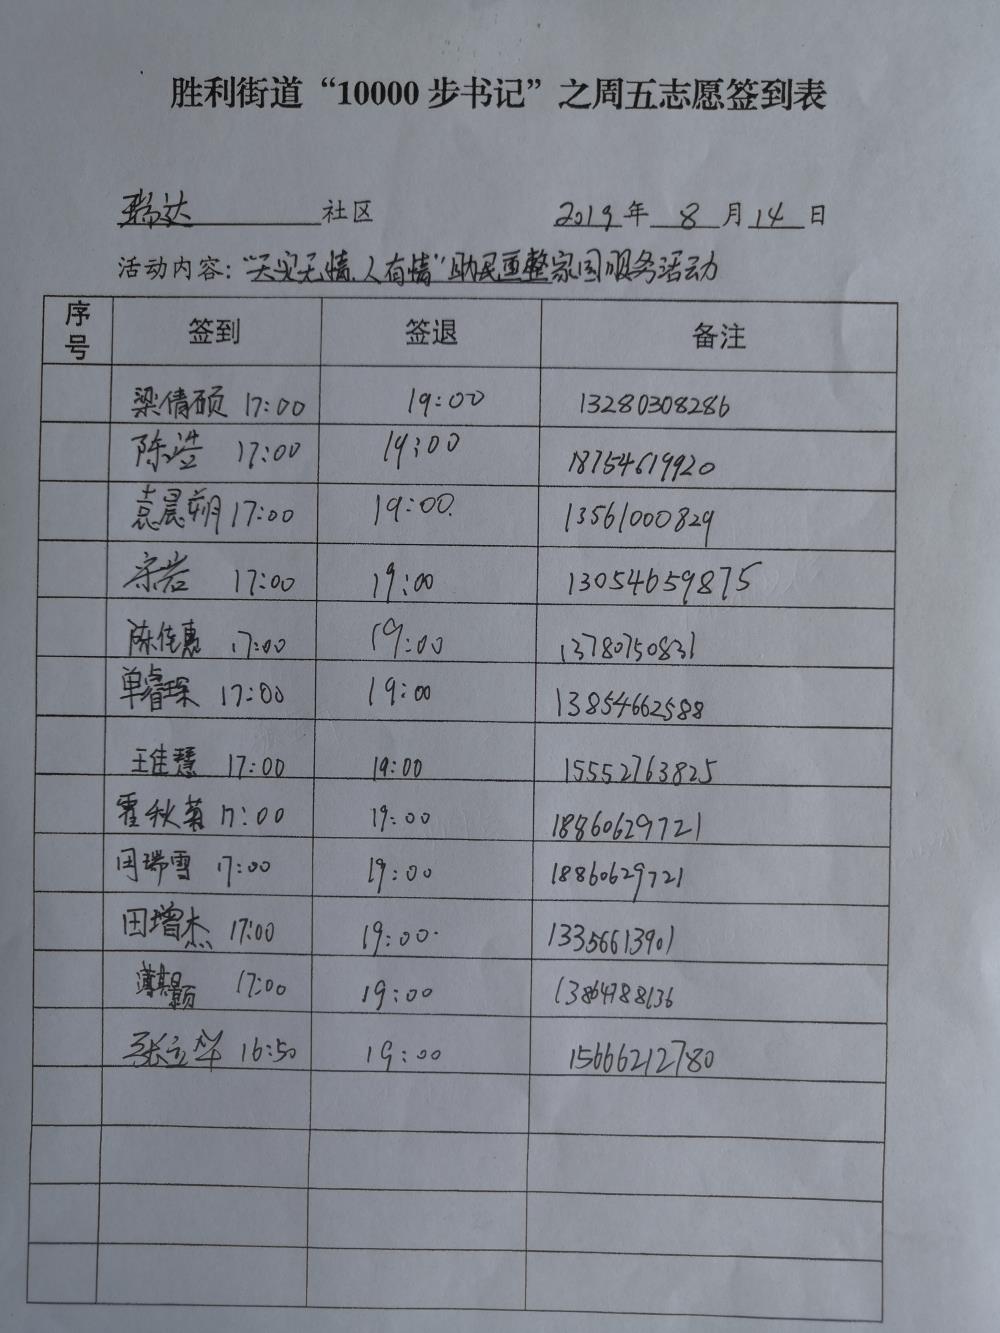 胜利街道“10000 步书记”之周五志愿签到表
瑞达 社区 2019 年 8 月 14 日
活动内容：“天灾无情、人有情”助民重整家园服务活动
序号 签到 签退 备注
梁倩硕 17:00 19:00 13280308286
陈浩 17:00 19:00 18754619920
袁晨朔 17:00 19:00. 13561000829
宗岩 17:00 19:00 13054659875
陈佳惠 17:00 19:00 13780750831
单睿琛 17:00 19:00 13854662588
王佳慧 17:00 19:00 15552763825
霍秋菊 17:00 19:00 18860629721
闫瑞雪 17:00 19:00 18860629721
田增杰 17:00 19:00 13356613901
薄其颢 17:00 19:00 13864788136
张立华 16:50 19:00 15666212780